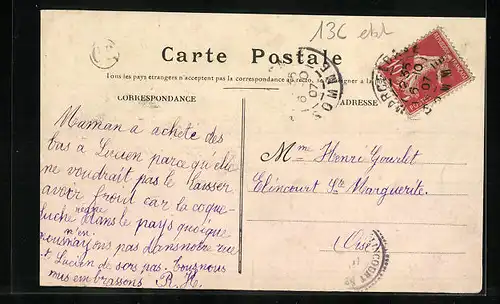 13€
Carte Postale
Tous les pays étrangers n'acceptent pas la correspondance au recto, se renseigner à la
CORRESPONDANCE
ADRESSE
Maman a acheté des
bas à Lucien parce qu'elle
ne voudrait pas le laisser
avoir froid car la coque-
luche règne dans le pays quoique
nous n'en ayons pas dans notre rue
et Lucien ne sors pas. Tous nous
vous embrassons R. H.
Mme Henri Gourlet
Elincourt Ste Marguerite
Oise
SOMME
6-10
07